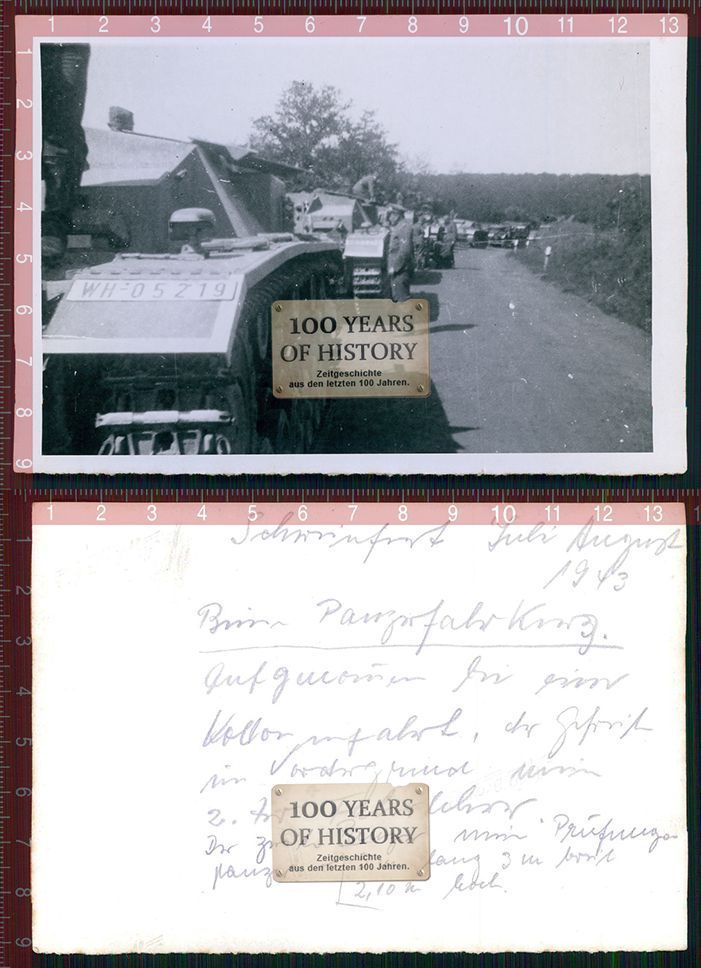 1 2 3 4 5 6 7 8 9 10 11 12 13
1 2 3 4 5 6 7 8 9
WH-05219
100 YEARS
OF HISTORY
Zeitgeschichte
aus den letzten 100 Jahren.
1 2 3 4 5 6 7 8 9 10 11 12 13
2 3 4 5 6 7 8 9
Schweinfurt Juli August
1943
Beim Panzerfahr Kurs.
Aufgenommen bei einer
Kolonnenfahrt, der Gefreite
im Vordergrund mein
2.
100 YEARS
OF HISTORY
Zeitgeschichte
aus den letzten 100 Jahren.
Der mein Prüfungs
panz lang 3 m breit
2,10 m hoch.